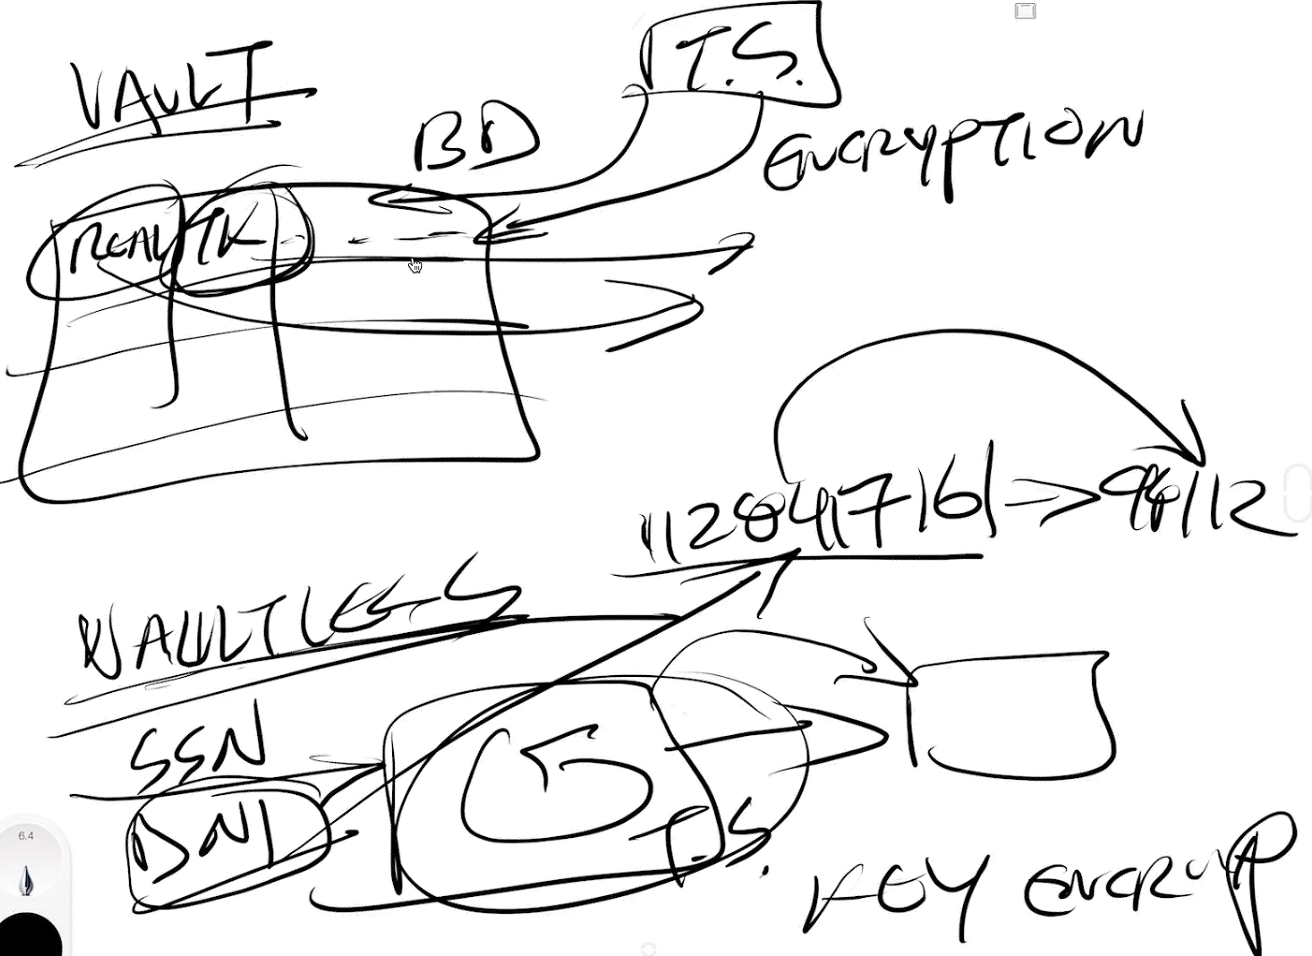 VAULT
T.S.
BD
ENCRYPTION
REAL TK
11280417161 => 96112
VAULTLESS
SSN
DNI
T.S.
KEY ENCRYP
6.4